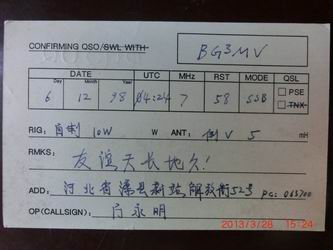 CONFIRMING QSO/SWL WITH
BG3MV
DATE UTC MHz RST MODE QSL
Day Month Year
6 12 98 04:24 7 58 SSB
PSE
TNX
RIG: 自制 10W W ANT: 倒V 5 mH
RMKS: 友谊天长地久!
ADD: 河北省滦县新站解放街52号 P.C: 063700
OP(CALLSIGN): 永明
2013/3/28 15:24